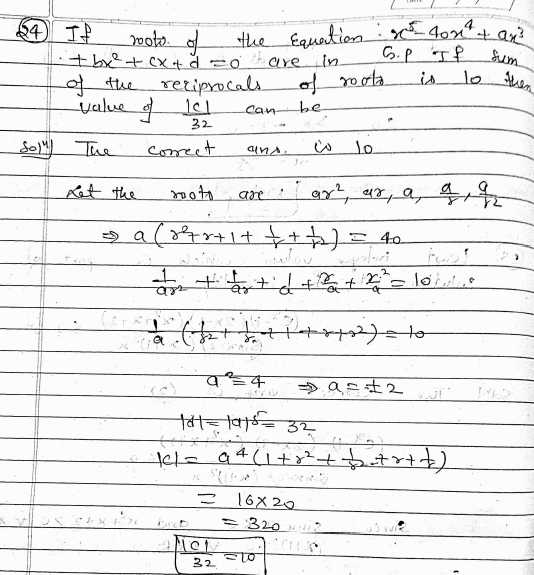 24) If roots of the Equation x⁵-40x⁴+ax³
+bx²+cx+d=0 are in G.P If sum
of the reciprocals of roots is 10 then
value of |c|/32 can be
Solⁿ) The correct ans. is 10
Let the roots are : ar², ar, a, a/r, a/r²
⇒ a(r²+r+1+1/r+1/r²) = 40
1/ar² + 1/ar + 1/a + r/a + r²/a = 10
1/a (1/r² + 1/r + 1 + r + r²) = 10
a² = 4 ⇒ a = ±2
|d| = |a|⁵ = 32
|c| = a⁴(1+r²+1/r²+r+1/r)
= 16×20
= 320
|c|/32 = 10